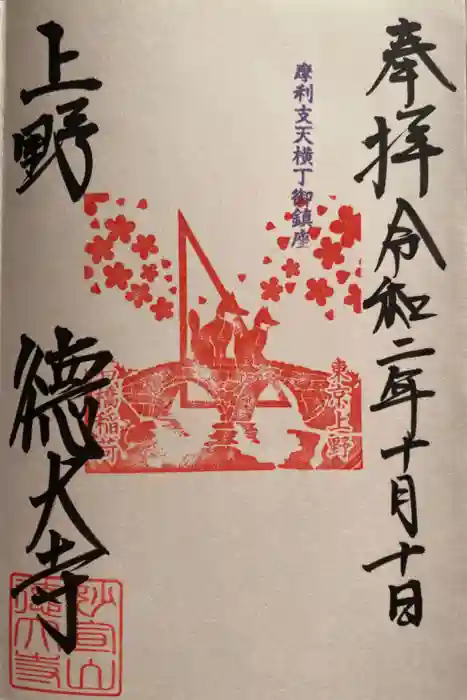 奉拝 令和二年十月十日
摩利支天横丁御鎮座
東京上野
稲荷
上野 徳大寺
妙宣山
徳大寺